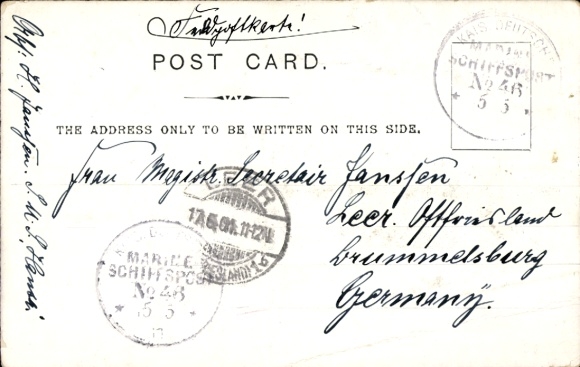 Feldpostkarte!
POST CARD.
THE ADDRESS ONLY TO BE WRITTEN ON THIS SIDE.
Frau Magistr. Secretair Janssen
Leer. Ostfriesland
Brummelsburg
Germany.
H. Janssen. S.M.S. Hansa!
KAIS. DEUTSCHE
MARINE
SCHIFFSPOST
No 46
5 5
MARINE
SCHIFFSPOST
No 46
5 5
LEER
17.6.01.11-12V
(OSTFRIESLAND) 1b